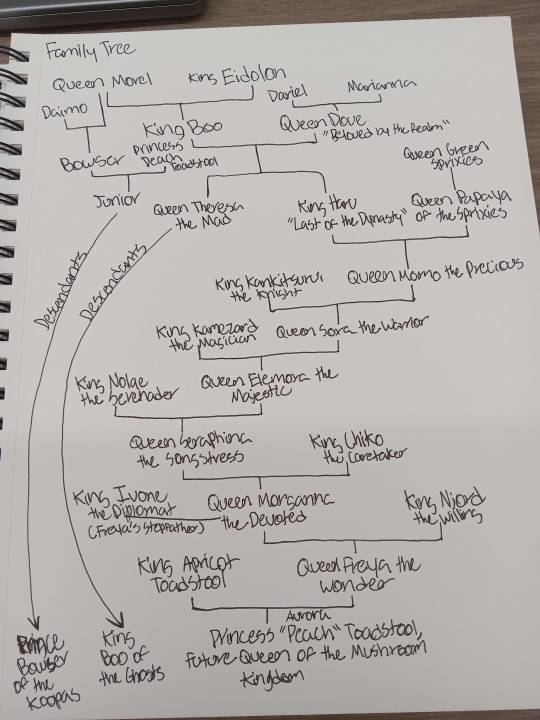 Family Tree
Queen Morel
King Eidolon
Dariel
Marianna
Daimo
King Boo
Queen Dove
"Beloved by the Realm"
Bowser
Princess
Peach
Toadstool
Queen Green
Sprixies
Junior
Queen Theresa
the Mad
King Haru
"Last of the Dynasty"
Queen Papaya
of the Sprixies
Descendants
Descendants
King Kankitsurui
the Knight
Queen Momo the Precious
King Kamezard
the Magician
Queen Sora the Warrior
King Nolge
the Serenader
Queen Elemora the
Majestic
Queen Seraphina
the Songstress
King Chiko
the Caretaker
King Ivone
the Diplomat
(Freya's Stepfather)
Queen Morganna
the Devoted
King Njord
the Willing
King Apricot
Toadstool
Queen Freya the
Wonder
Aurora
Princess "Peach" Toadstool,
Future Queen of the Mushroom
Kingdom
Prince
Bowser
of the
Koopas
King
Boo of
the Ghosts